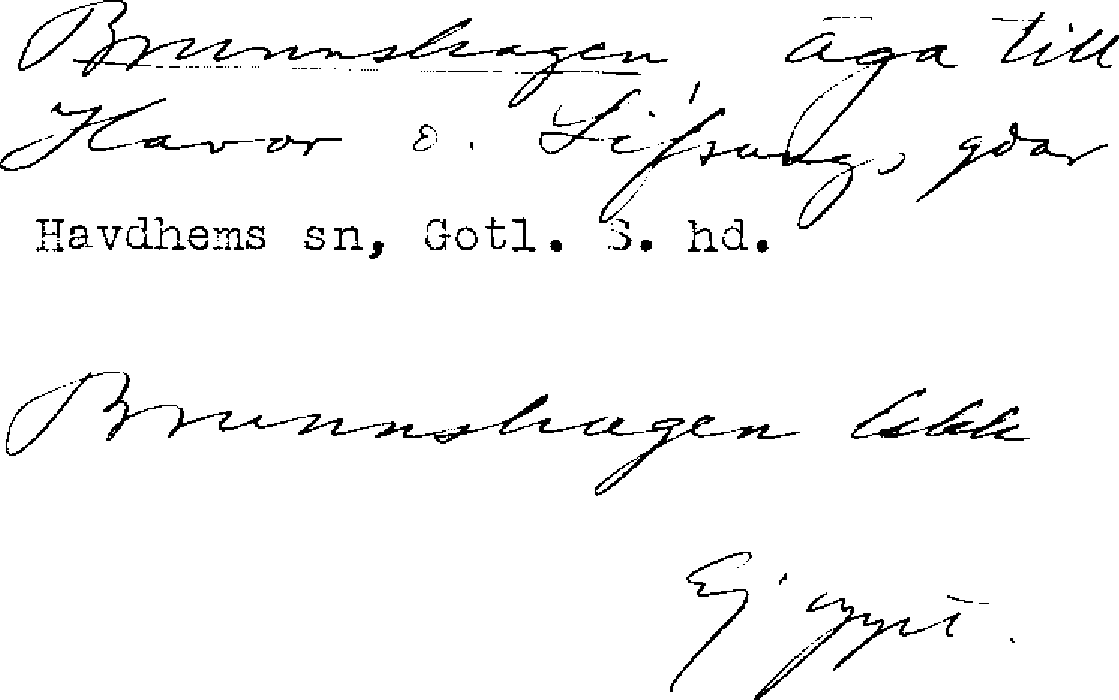 Brunnshagen, äga till
Havor o. Lifsungs, gdar
Havdhems sn, Gotl. S. hd.
Brunnshagen
Ej uppt.